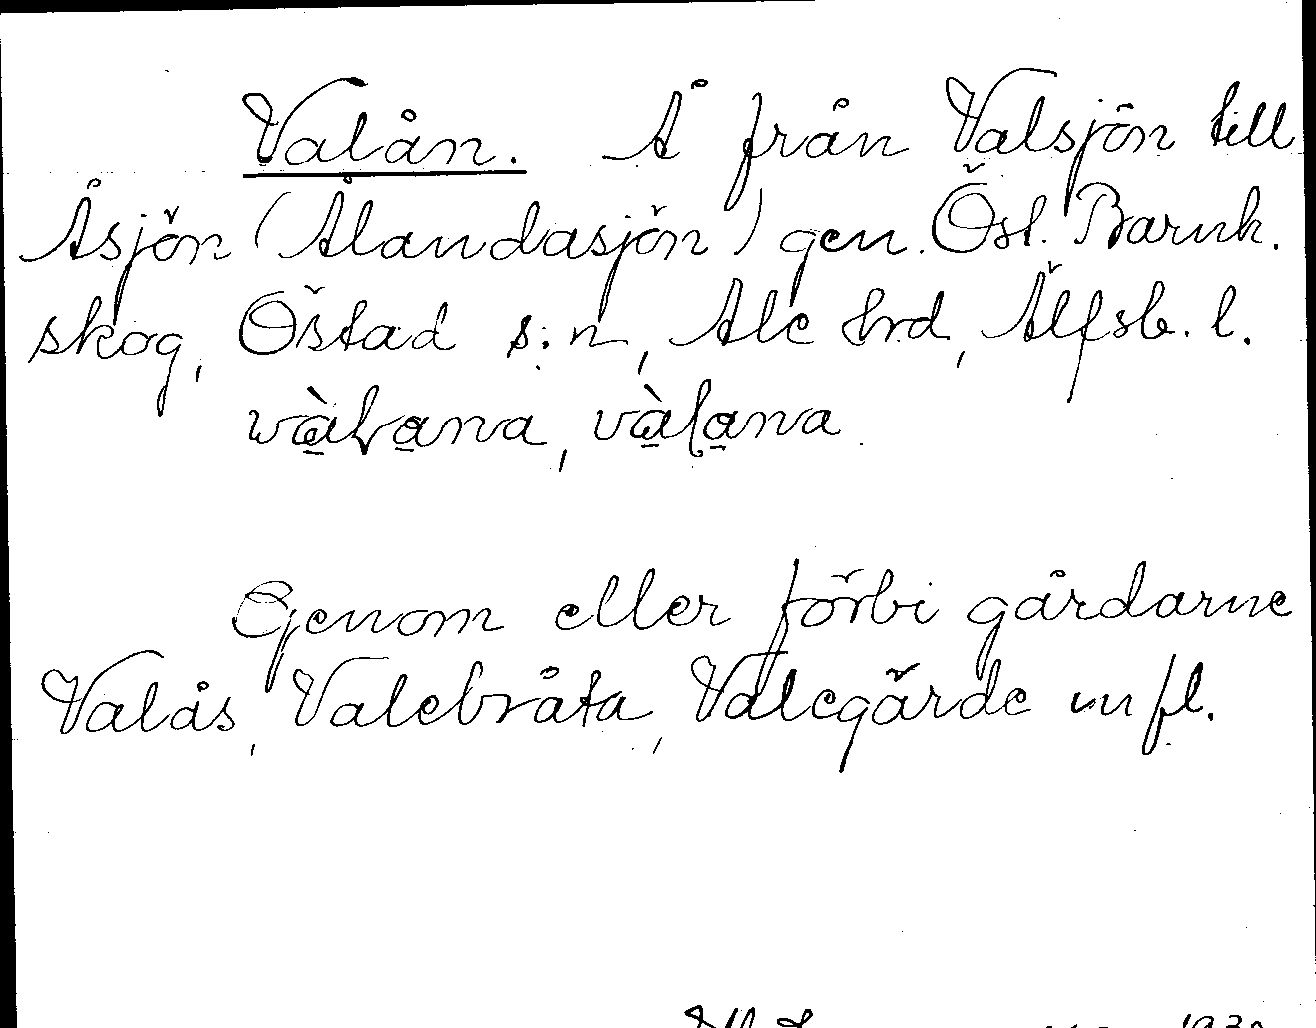 Valån. Å från Valsjön till
Åsjön (Ålandasjön) gen. Öst. Barnk.
skog, Östad s:n, Ale hrd, Älfsb. l.
Genom eller förbi gårdarne
Valås, Valebråta, Valegärde m fl.